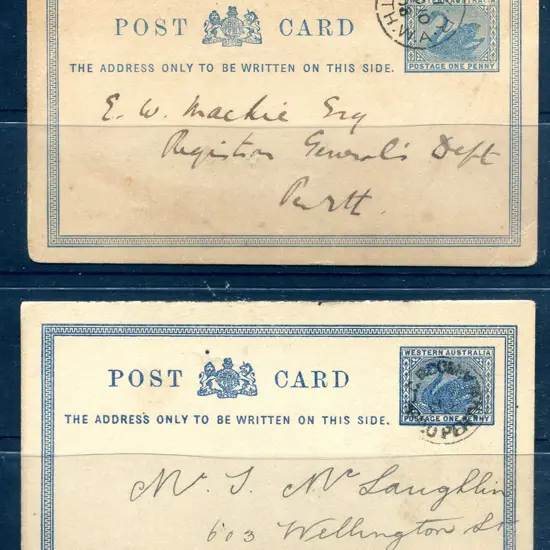 POST CARD
WESTERN AUSTRALIA
POSTAGE ONE PENNY
THE ADDRESS ONLY TO BE WRITTEN ON THIS SIDE.
E. W. Mackie Esq
Registrar General's Dept
Perth
POST CARD
WESTERN AUSTRALIA
POSTAGE ONE PENNY
THE ADDRESS ONLY TO BE WRITTEN ON THIS SIDE.
Mr. J. McLaughlin
603 Wellington St